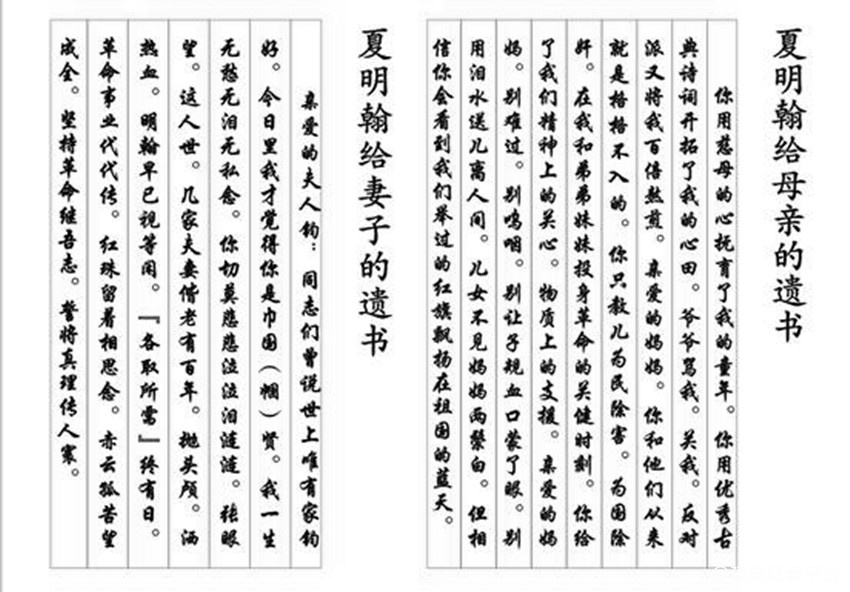 夏明翰给母亲的遗书
你用慈母的心抚育了我的童年。你用优秀古
典诗词开拓了我的心田。爷爷骂我。关我。反对
派又将我百倍熬煎。亲爱的妈妈。你和他们从来
就是格格不入的。你只教儿为民除害。为国除
奸。在我和弟弟妹妹投身革命的关健时刻。你给
了我们精神上的关心。物质上的支援。亲爱的妈
妈。别难过。别呜咽。别让子规血口蒙了眼。别
用泪水送儿离人间。儿女不见妈妈两鬓白。但相
信你会看到我们举过的红旗飘扬在祖国的蓝天。
夏明翰给妻子的遗书
亲爱的夫人钧：同志们曾说世上唯有家钧
好。今日里我才觉得你是巾国（帼）贤。我一生
无愁无泪无私念。你切莫悲悲泣泣泪涟涟。张眼
望。这人世。几家夫妻偕老有百年。抛头颅。洒
热血。明翰早已视等闲。『各取所需』终有日。
革命事业代代传。红珠留着相思念。赤云孤苦望
成全。坚持革命继吾志。誓将真理传人寰。